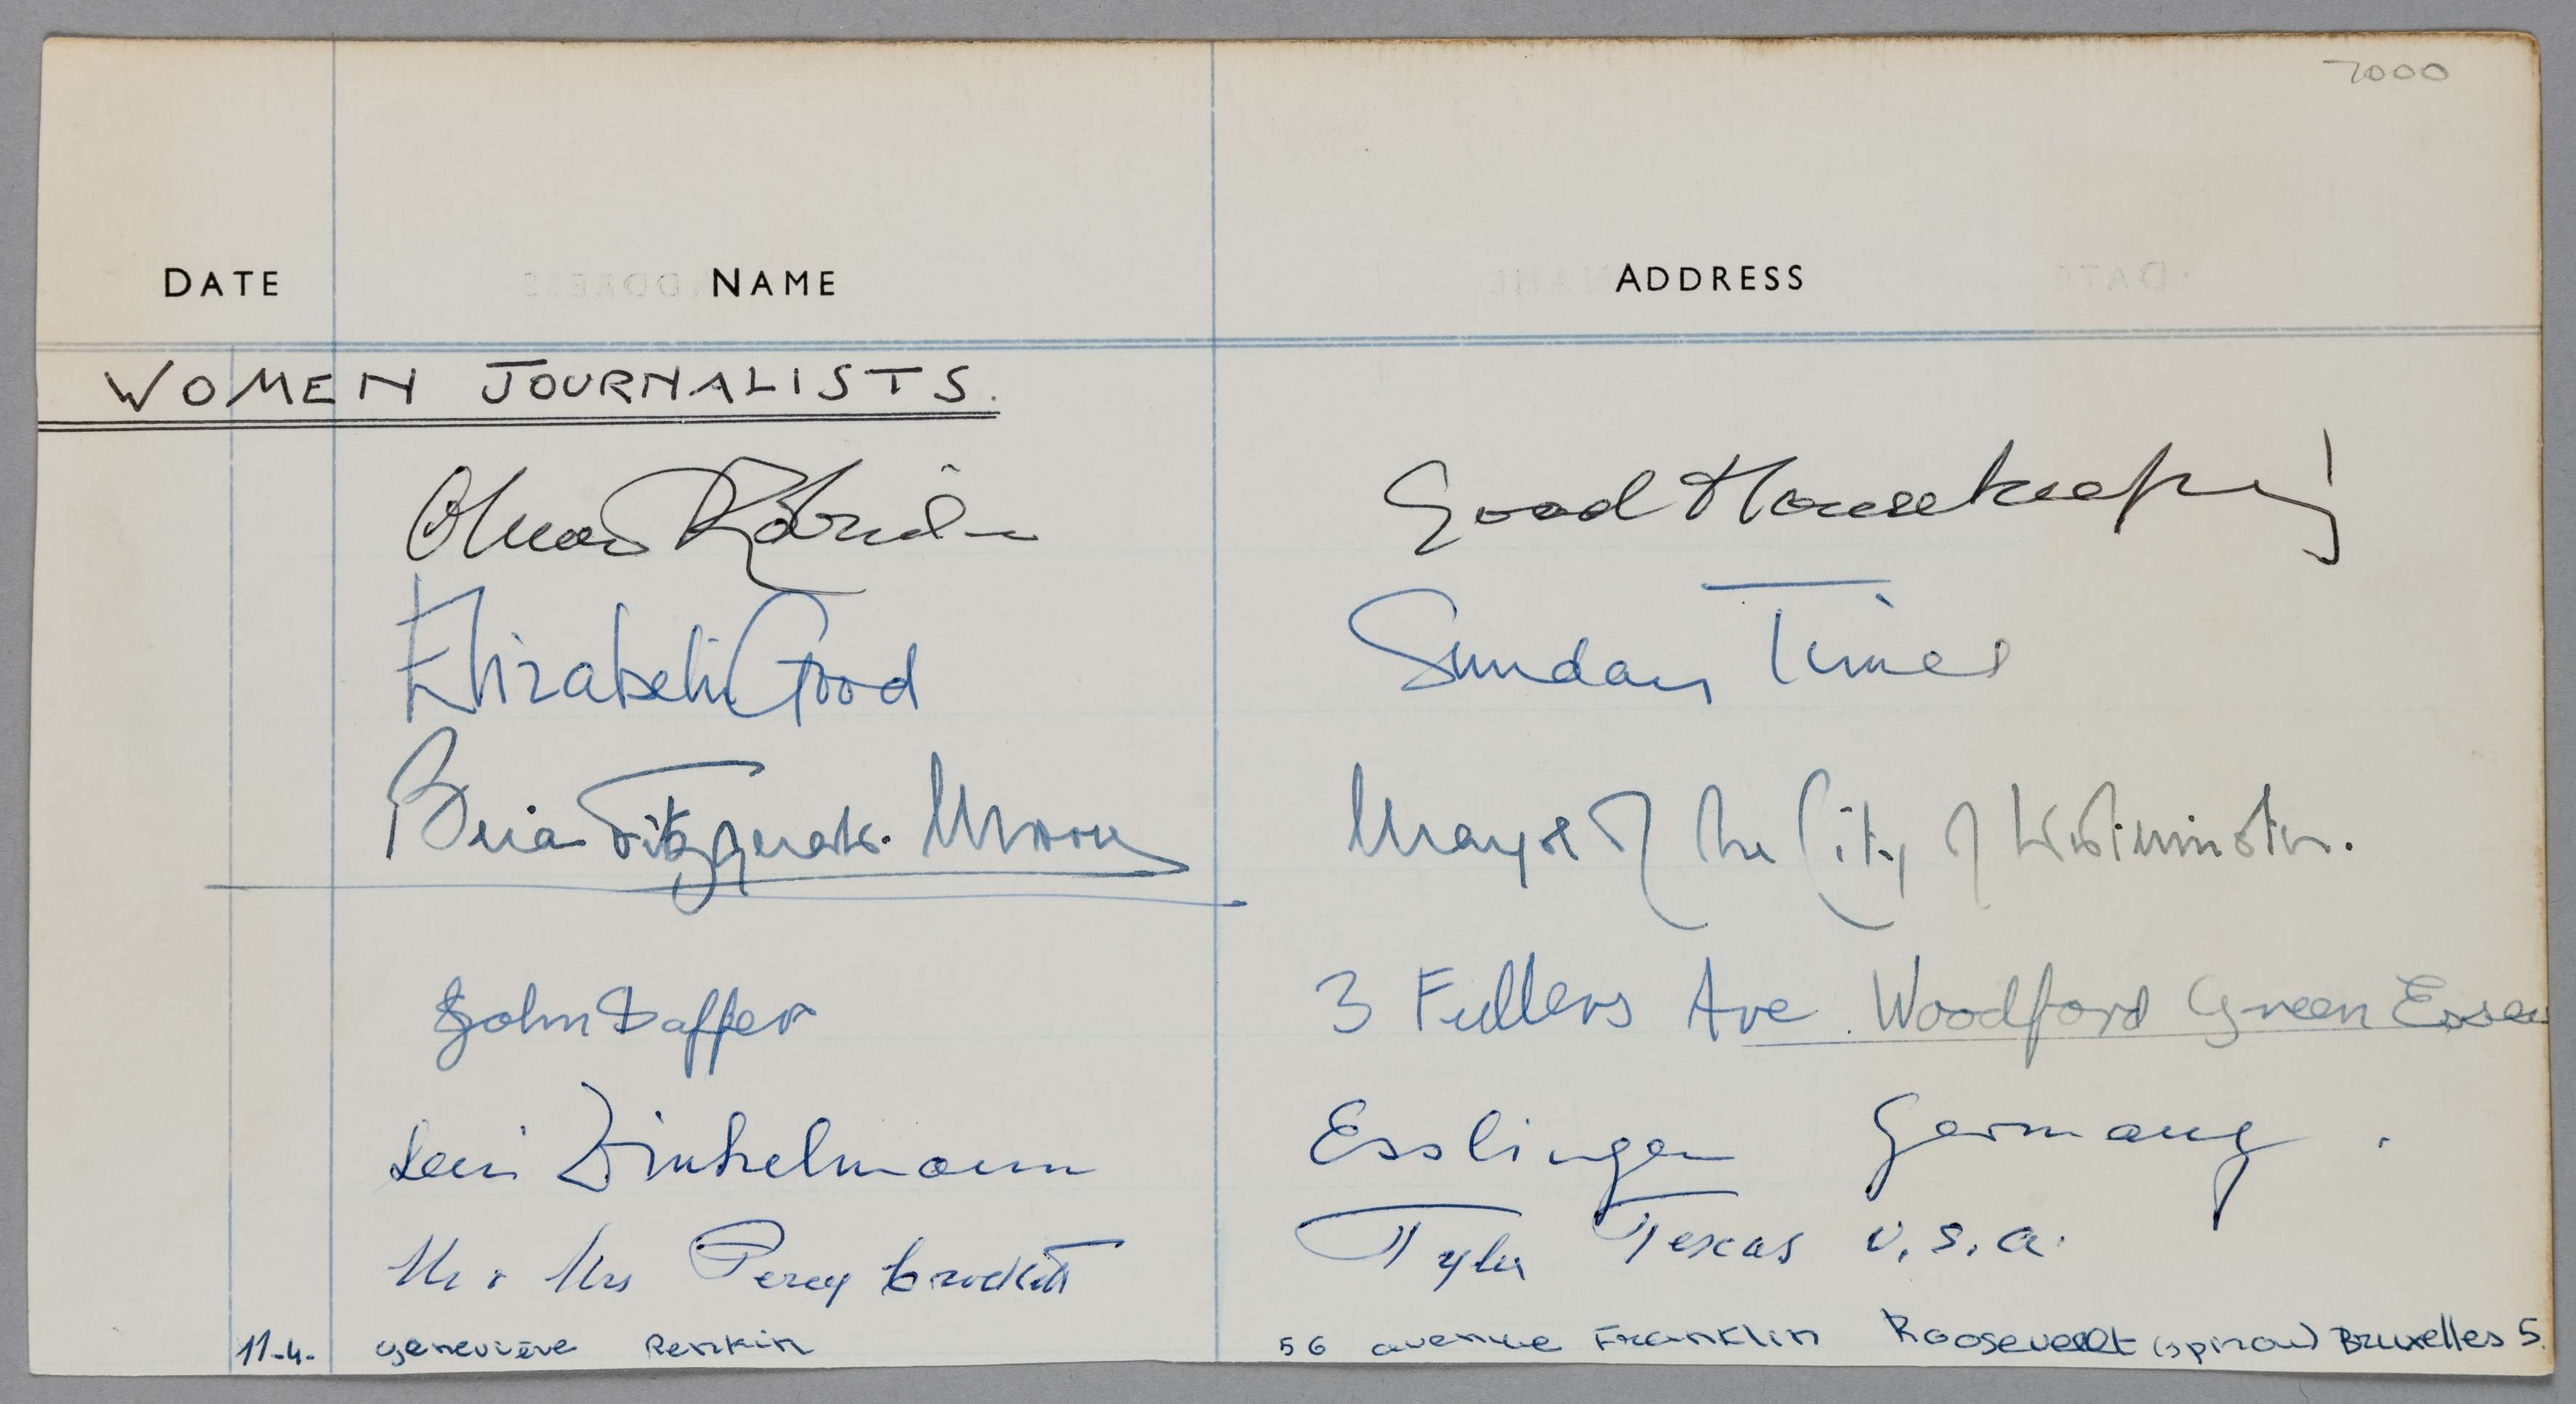 7000
DATE NAME ADDRESS
WOMEN JOURNALISTS.
Good Housekeeping
Elizabeth Good Sunday Times
Brian Fitzgerald. Moore Mayor of the City of Westminster.
John Daffer 3 Fullers Ave. Woodford Green Essex
Dinkelmann Esslingen Germany.
Mr & Mrs Percy Crockett Tyler Texas U.S.A.
11-4- Geneviève Renkin 56 avenue Franklin Roosevelt (spirou) Bruxelles 5.